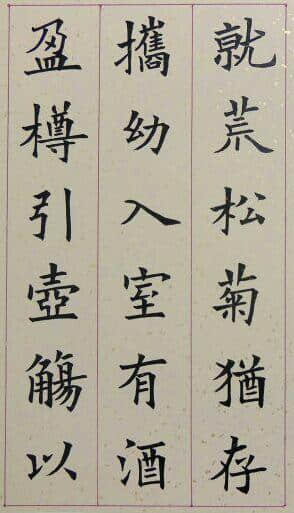 就荒松菊猶存
攜幼入室有酒
盈樽引壺觴以